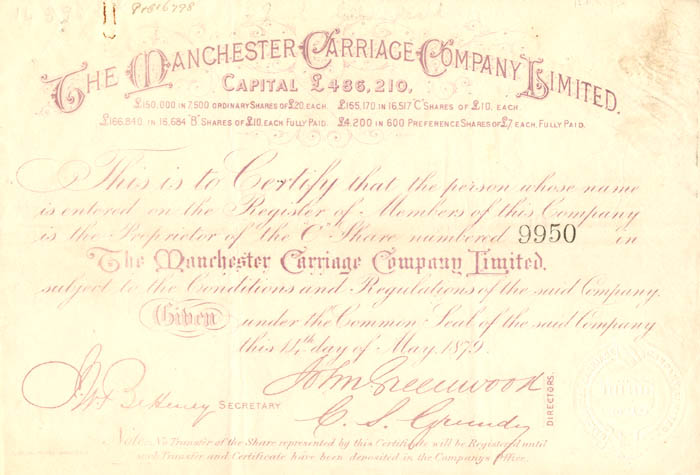 Pr816798
The Manchester Carriage Company Limited.
Capital £486,210,
£150,000 in 7,500 Ordinary Shares of £20 each. £165,170 in 16,517 "C" Shares of £10, each.
£166,840 in 16,684 "B" Shares of £10, each Fully Paid. £4,200 in 600 Preference Shares of £7 each, Fully Paid.
This is to Certify that the person whose name
is entered on the Register of Members of this Company
is the Proprietor of the C Share numbered 9950 in
The Manchester Carriage Company Limited,
subject to the Conditions and Regulations of the said Company.
Given under the Common Seal of the said Company
this 14th day of May 1879
Secretary
John Greenwood
C. S. Grundy
Directors.
Note: No Transfer of the Share represented by this Certificate will be Registered until
such Transfer and Certificate have been deposited in the Company's Office.